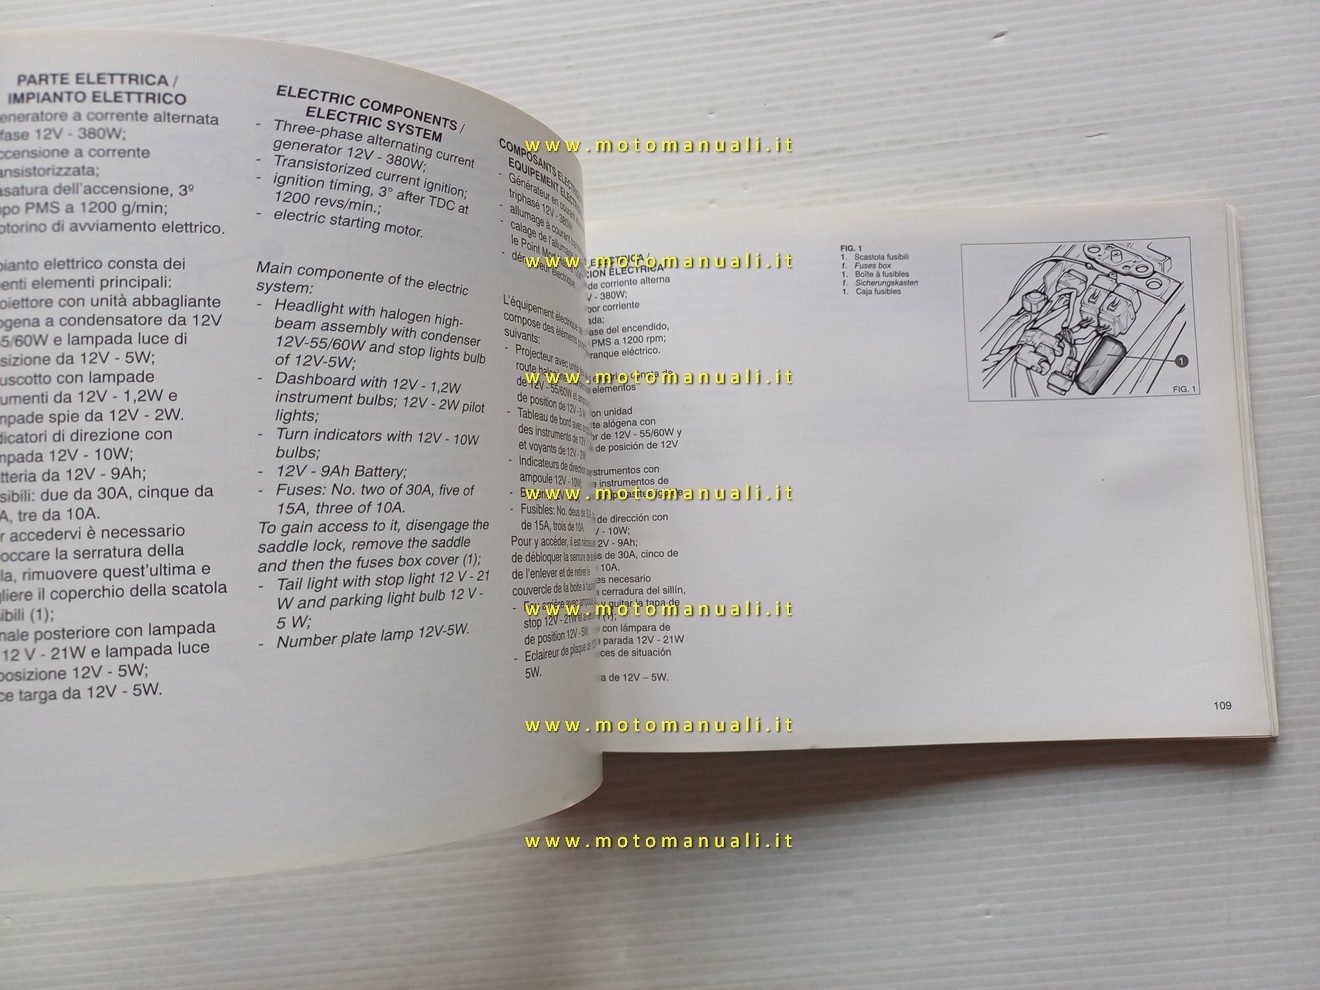 PARTE ELETTRICA /
IMPIANTO ELETTRICO
eneratore a corrente alternata
fase 12V - 380W;
ccensione a corrente
ansistorizzata;
asatura dell'accensione, 3º
opo PMS a 1200 g/min;
otorino di avviamento elettrico.
pianto elettrico consta dei
enti elementi principali:
oiettore con unità abbagliante
ogena a condensatore da 12V
55/60W e lampada luce di
sizione da 12V - 5W;
uscotto con lampade
umenti da 12V - 1,2W e
mpade spie da 12V - 2W.
dicatori di direzione con
mpada 12V - 10W;
tteria da 12V - 9Ah;
sibili: due da 30A, cinque da
A, tre da 10A.
r accedervi è necessario
occare la serratura della
la, rimuovere quest'ultima e
gliere il coperchio della scatola
ibili (1);
nale posteriore con lampada
12 V - 21W e lampada luce
posizione 12V - 5W;
ce targa da 12V - 5W.
ELECTRIC COMPONENTS /
ELECTRIC SYSTEM
- Three-phase alternating current
generator 12V - 380W;
- Transistorized current ignition;
- ignition timing, 3° after TDC at
1200 revs/min.;
- electric starting motor.
Main componente of the electric
system:
- Headlight with halogen high-
beam assembly with condenser
12V-55/60W and stop lights bulb
of 12V-5W;
- Dashboard with 12V - 1,2W
instrument bulbs; 12V - 2W pilot
lights;
- Turn indicators with 12V - 10W
bulbs;
- 12V - 9Ah Battery;
- Fuses: No. two of 30A, five of
15A, three of 10A.
To gain access to it, disengage the
saddle lock, remove the saddle
and then the fuses box cover (1);
- Tail light with stop light 12 V - 21
W and parking light bulb 12 V -
5 W;
- Number plate lamp 12V-5W.
COMPOSANTS ELECTRI
EQUIPEMENT ELECTRI
- Générateur en courant
triphasé 12V - 380W
- allumage à courant
- calage de l'allumage
le Point Mort
- démarreur électrique.
L'équipement électrique
compose des éléments
suivants:
- Projecteur avec unité
route
de 12V - 55/60W et
de position de 12V - 5 W
- Tableau de bord avec
des instruments de 12V
et voyants de 12V - 2W
- Indicateurs de direction
ampoule 12V - 10W
- Fusibles: No. deux de 30A
de 15A, trois de 10A.
Pour y accéder, il est nécess
de débloquer la serrure de la
de l'enlever et de retirer le
couvercle de la boîte à
stop 12V - 21W et
de position 12V - 5W;
- Eclaireur de plaque de
5W.
ELECTRICA /
CION ELECTRICA
de corriente alterna
V - 380W;
por corriente
ada;
ase del encendido,
PMS a 1200 rpm;
ranque eléctrico.
elementos
on unidad
te alógena con
or de 12V - 55/60W y
de posición de 12V
nstrumentos con
instrumentos de
de dirección con
V - 10W;
2V - 9Ah;
s de 30A, cinco de
10A.
es necesario
a cerradura del sillín,
y quitar la tapa de
(1);
con lámpara de
parada 12V - 21W
ces de situación
a de 12V – 5W.
FIG. 1
1. Scastola fusibili
1. Fuses box
1. Boîte à fusibles
1. Sicherungskasten
1. Caja fusibles
1
FIG. 1
109
www.motomanuali.it
www.motomanuali.it
www.motomanuali.it
www.motomanuali.it
www.motomanuali.it
www.motomanuali.it
www.motomanuali.it